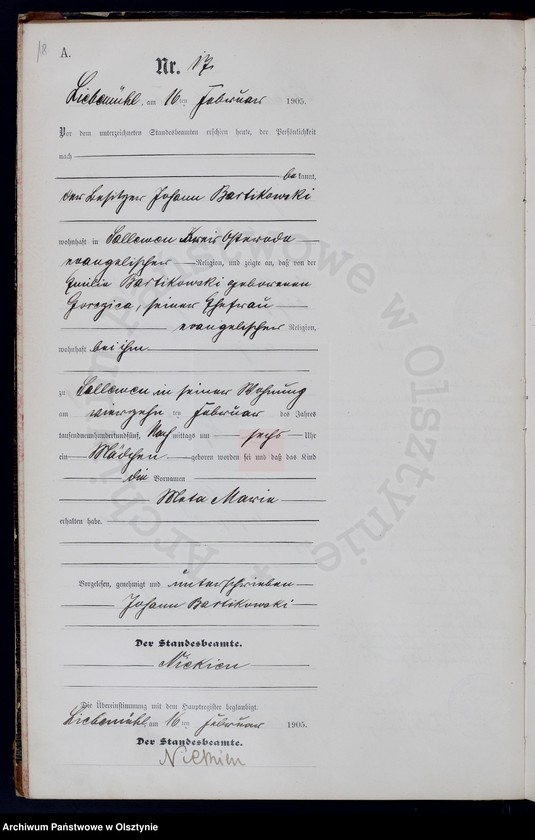 18
A.
Nr. 17.
Liebemühl, am 16ten Februar 1905.
Vor dem unterzeichneten Standesbeamten erschien heute, der Persönlichkeit
nach
bekannt,
der Besitzer Johann Bartikowski
wohnhaft in Sallewen Kreis Osterode
evangelischer Religion, und zeigte an, daß von der
Emilie Bartikowski geborenen
Gorczica, seiner Ehefrau
evangelischer Religion,
wohnhaft bei ihm.
zu Sallewen in seiner Wohnung
am vierzehn ten Februar des Jahres
tausendneunhundertundfünf, Nachmittags um sechs Uhr
ein Mädchen geboren worden sei und daß das Kind
die Vornamen
Meta Marie
erhalten habe.
Vorgelesen, genehmigt und unterschrieben
Johann Bartikowski
Der Standesbeamte.
Nickien
Die Übereinstimmung mit dem Hauptregister beglaubigt.
Liebemühl, am 16ten Februar 1905.
Der Standesbeamte.
Nickien
Archiwum Państwowe w Olsztynie